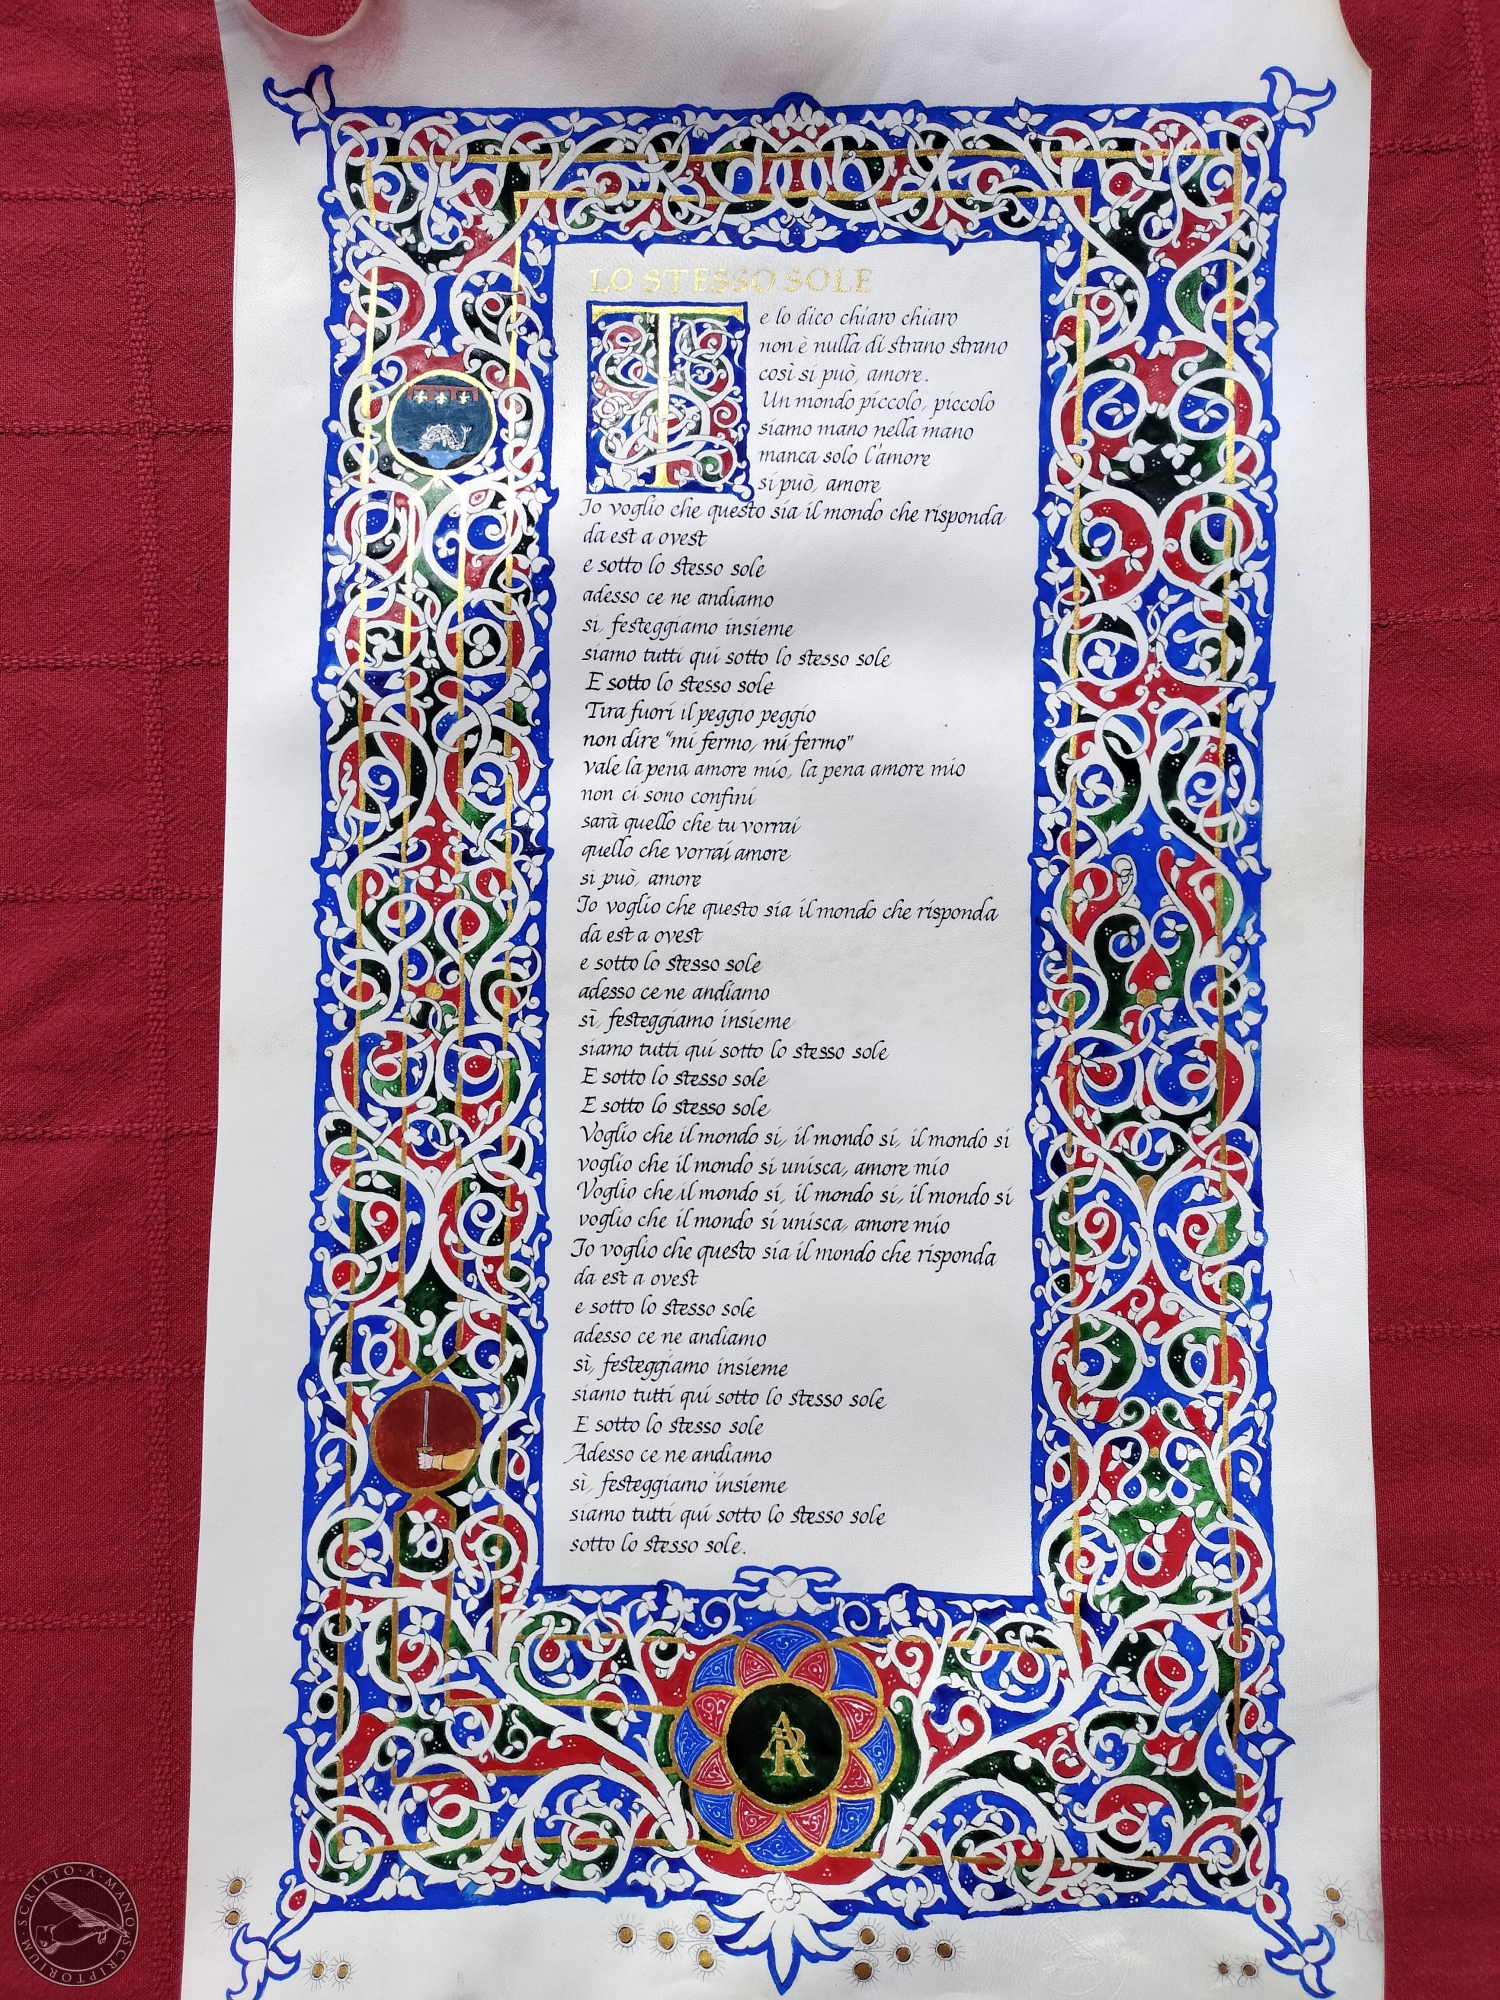 LO STESSO SOLE
Te lo dico chiaro chiaro
non è nulla di strano strano
così si può, amore.
Un mondo piccolo, piccolo
siamo mano nella mano
manca solo l'amore
si può, amore
Io voglio che questo sia il mondo che risponda
da est a ovest
e sotto lo stesso sole
adesso ce ne andiamo
si, festeggiamo insieme
siamo tutti qui sotto lo stesso sole
E sotto lo stesso sole
Tira fuori il peggio peggio
non dire "mi fermo, mi fermo"
vale la pena amore mio, la pena amore mio
non ci sono confini
sarà quello che tu vorrai
quello che vorrai amore
si può, amore
Io voglio che questo sia il mondo che risponda
da est a ovest
e sotto lo stesso sole
adesso ce ne andiamo
sì, festeggiamo insieme
siamo tutti qui sotto lo stesso sole
E sotto lo stesso sole
E sotto lo stesso sole
Voglio che il mondo si, il mondo si, il mondo si
voglio che il mondo si unisca, amore mio
Voglio che il mondo si, il mondo si, il mondo si
voglio che il mondo si unisca, amore mio
Io voglio che questo sia il mondo che risponda
da est a ovest
e sotto lo stesso sole
adesso ce ne andiamo
sì, festeggiamo insieme
siamo tutti qui sotto lo stesso sole
E sotto lo stesso sole
Adesso ce ne andiamo
sì, festeggiamo insieme
siamo tutti qui sotto lo stesso sole
sotto lo stesso sole.
AR
SCRITTO·A·MANO SCRIPTORIUM